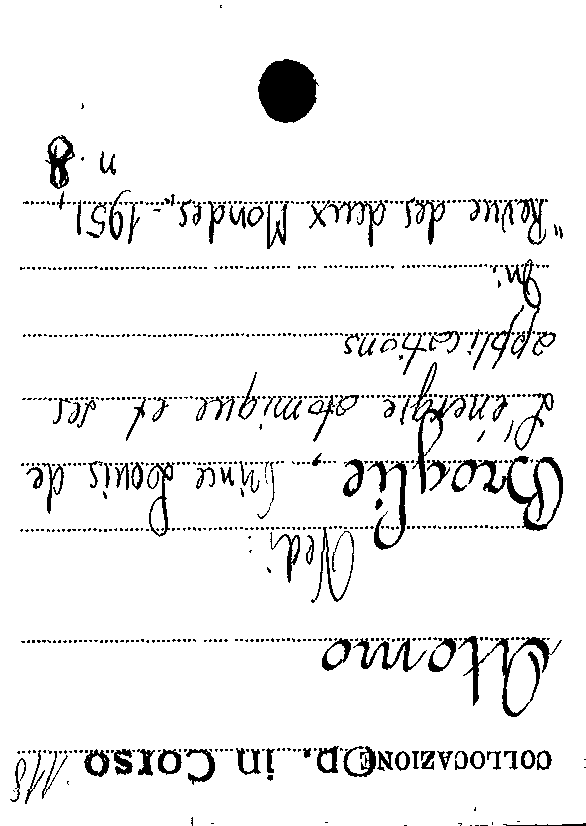 COLLOCAZIONE Op. in Corso 118
Atomo
Vedi:
Broglie, Prince Louis de
L'énergie atomique et ses
applications
In:
"Revue des deux Mondes", - 1951,
n. 8